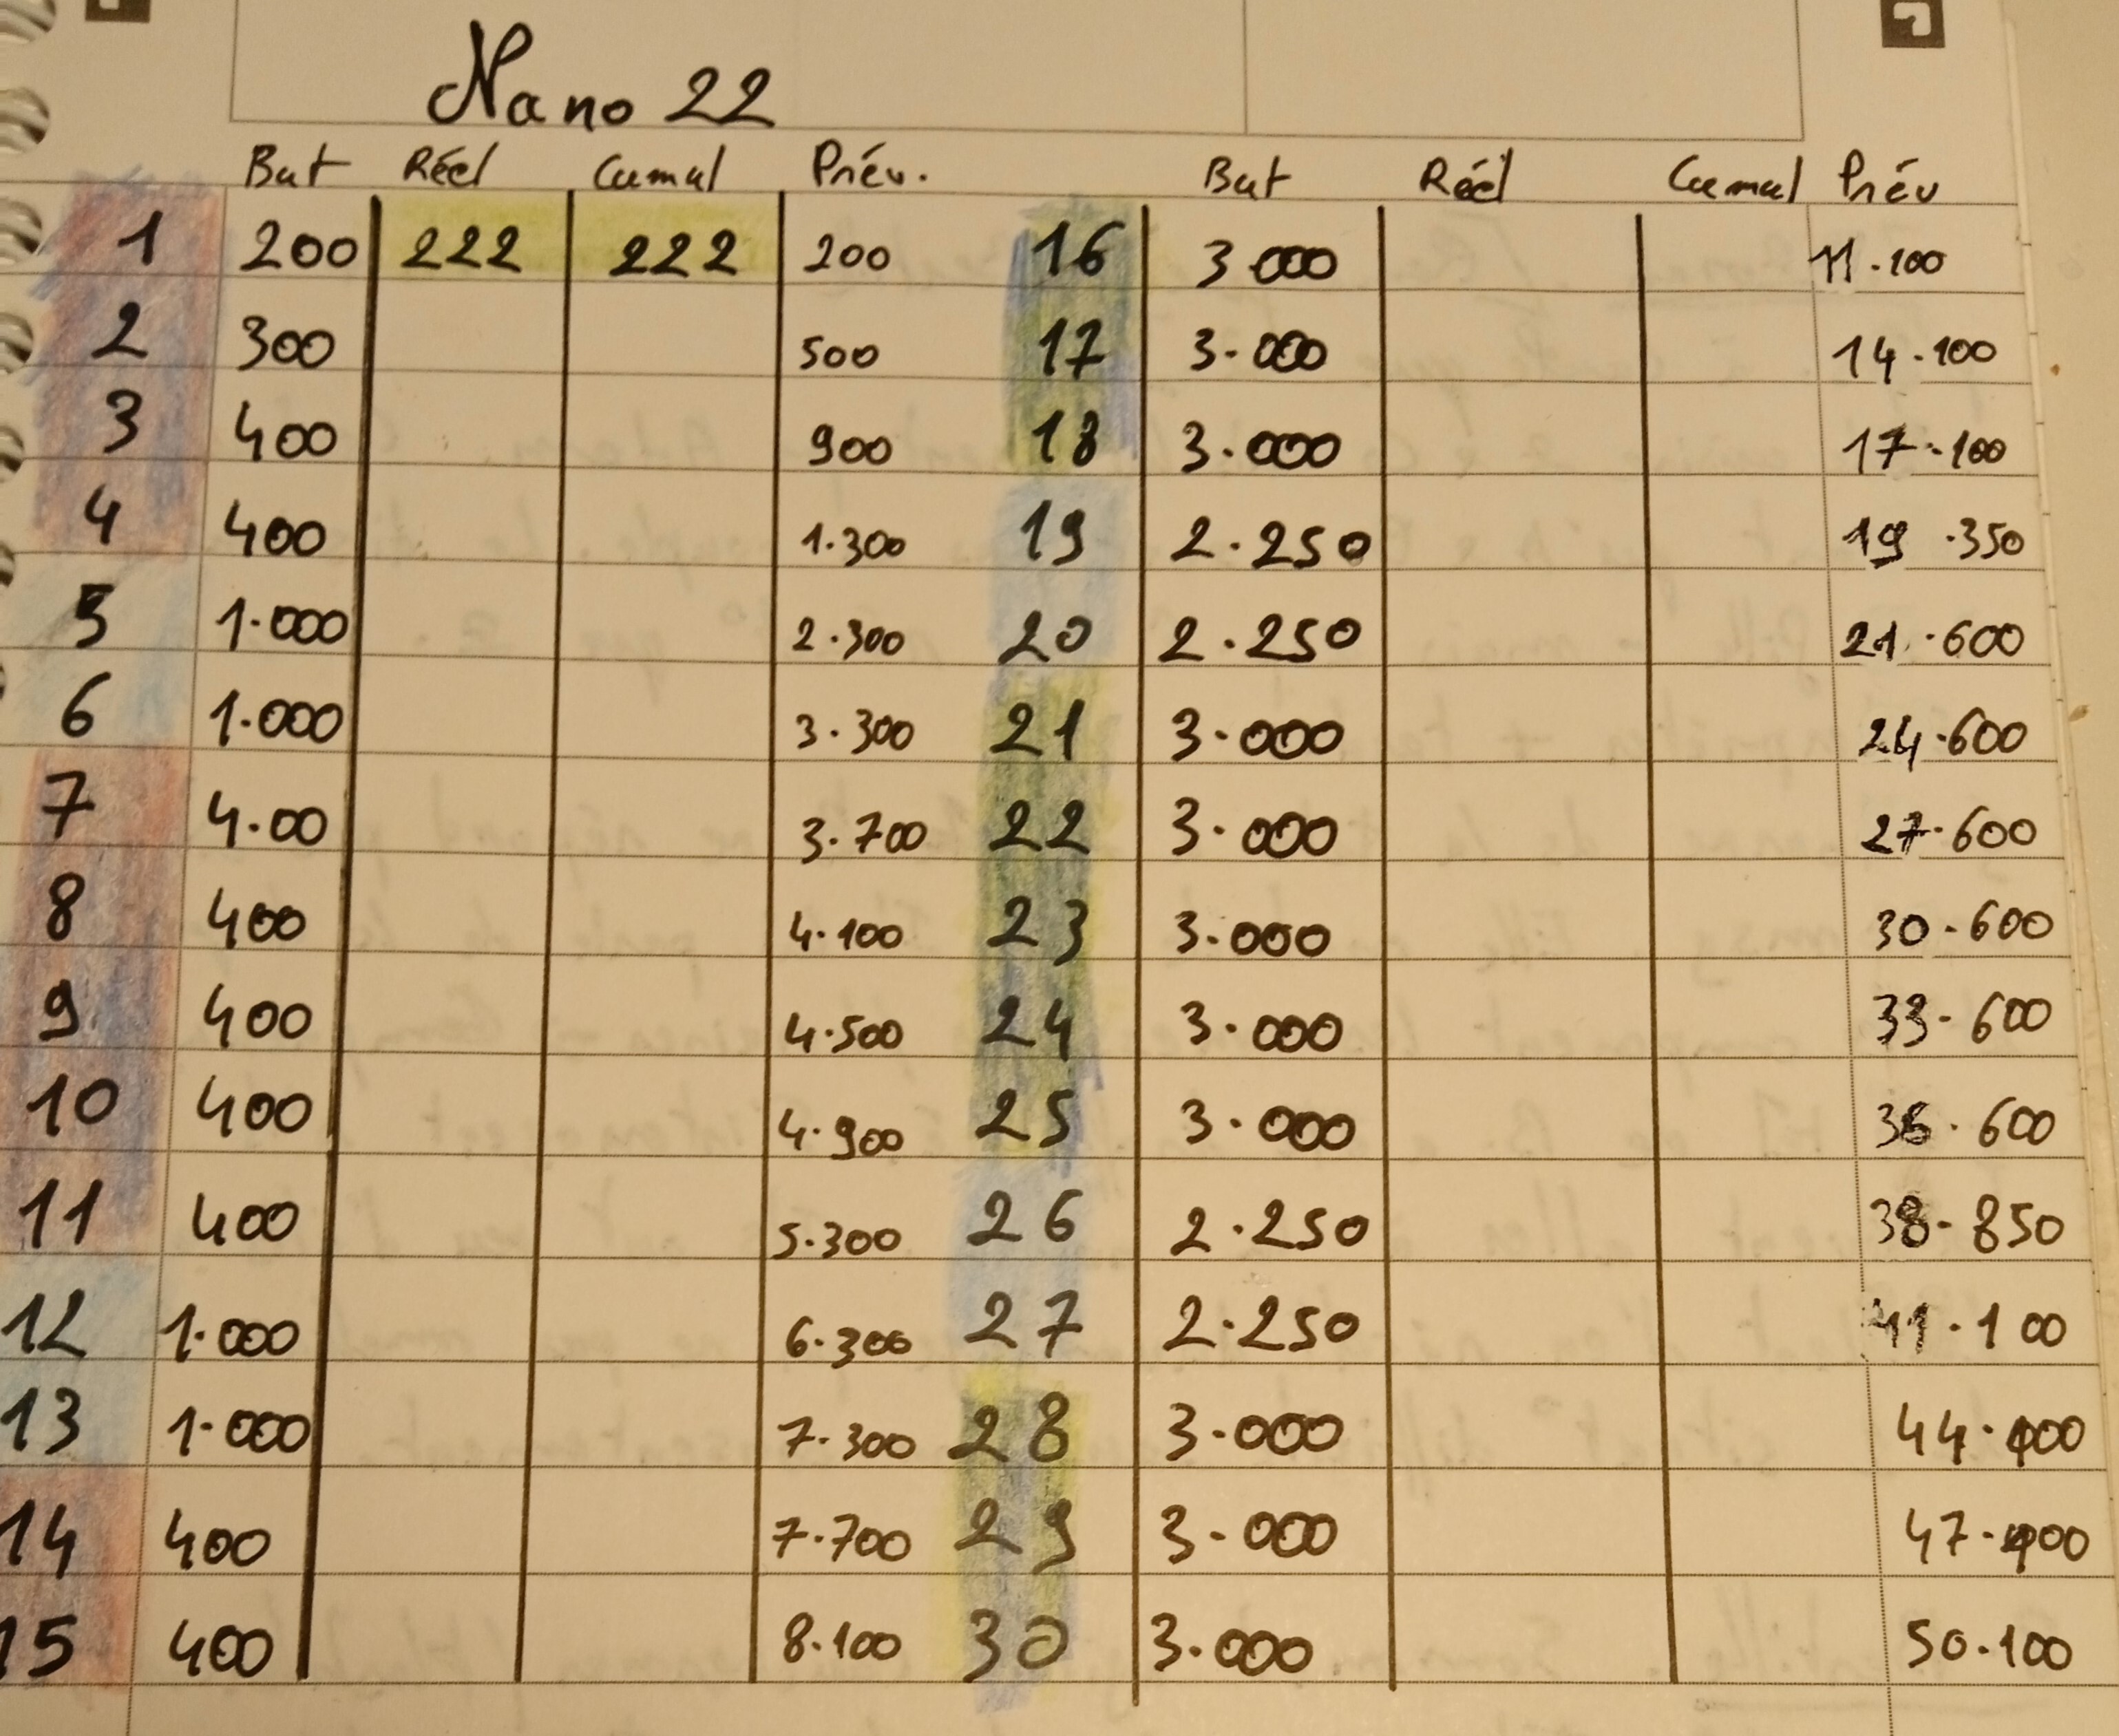 Nano 22
But Réel Cumul Prév. But Réel Cumul Prév
1 200 222 222 200 16 3.000 11.100
2 300 500 17 3.000 14.100
3 400 900 18 3.000 17.100
4 400 1.300 19 2.250 19.350
5 1.000 2.300 20 2.250 21.600
6 1.000 3.300 21 3.000 24.600
7 4.00 3.700 22 3.000 27.600
8 400 4.100 23 3.000 30.600
9 400 4.500 24 3.000 33.600
10 400 4.900 25 3.000 36.600
11 400 5.300 26 2.250 38.850
12 1.000 6.300 27 2.250 41.100
13 1.000 7.300 28 3.000 44.100
14 400 7.700 29 3.000 47.100
15 400 8.100 30 3.000 50.100